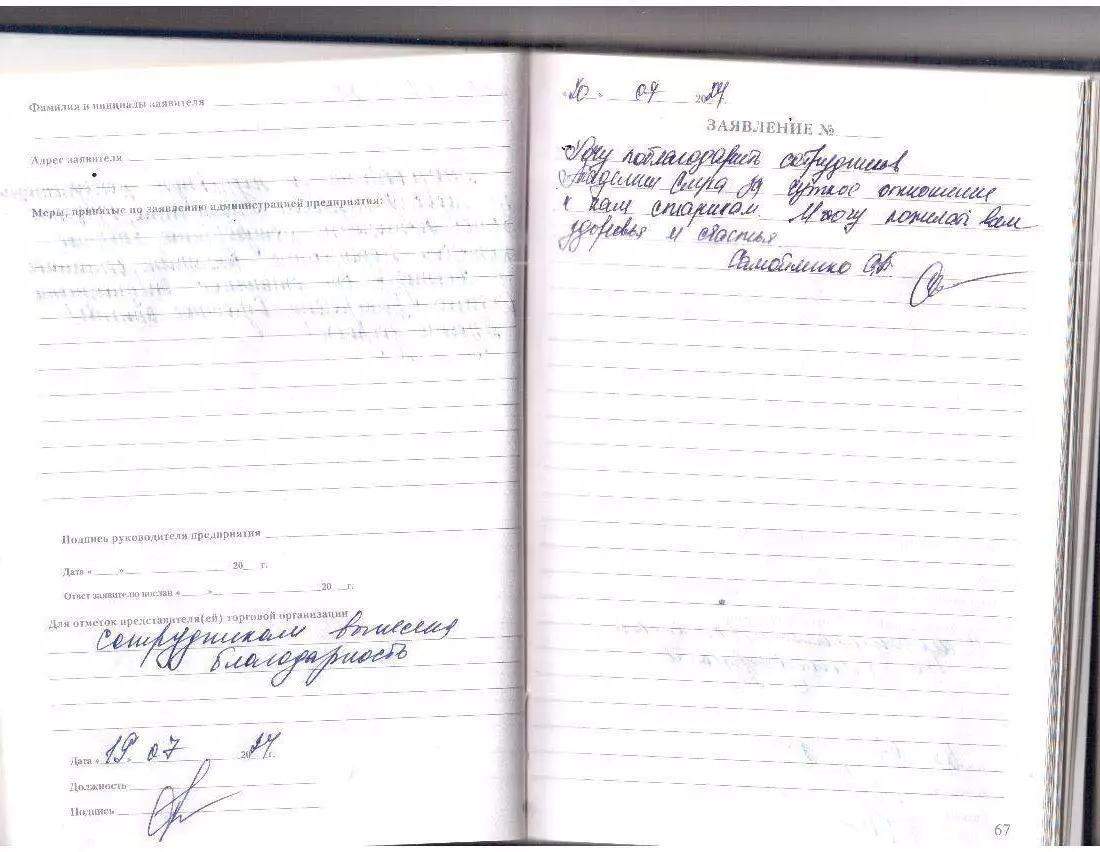 Фамилия и инициалы заявителя
Адрес заявителя
Меры, принятые по заявлению администрацией предприятия:
Подпись руководителя предприятия
Дата « » 20 г.
Ответ заявителю послан « » 20 г.
Для отметок представителя(ей) торговой организации
сотрудникам вынесена
благодарность
Дата « 19 » 07 2024 г.
Должность
Подпись
« 20 » 07 2024
ЗАЯВЛЕНИЕ №
поблагодарить сотрудников
за чуткое отношение
к нам старикам. Я хочу пожелать вам
здоровья и счастья
67